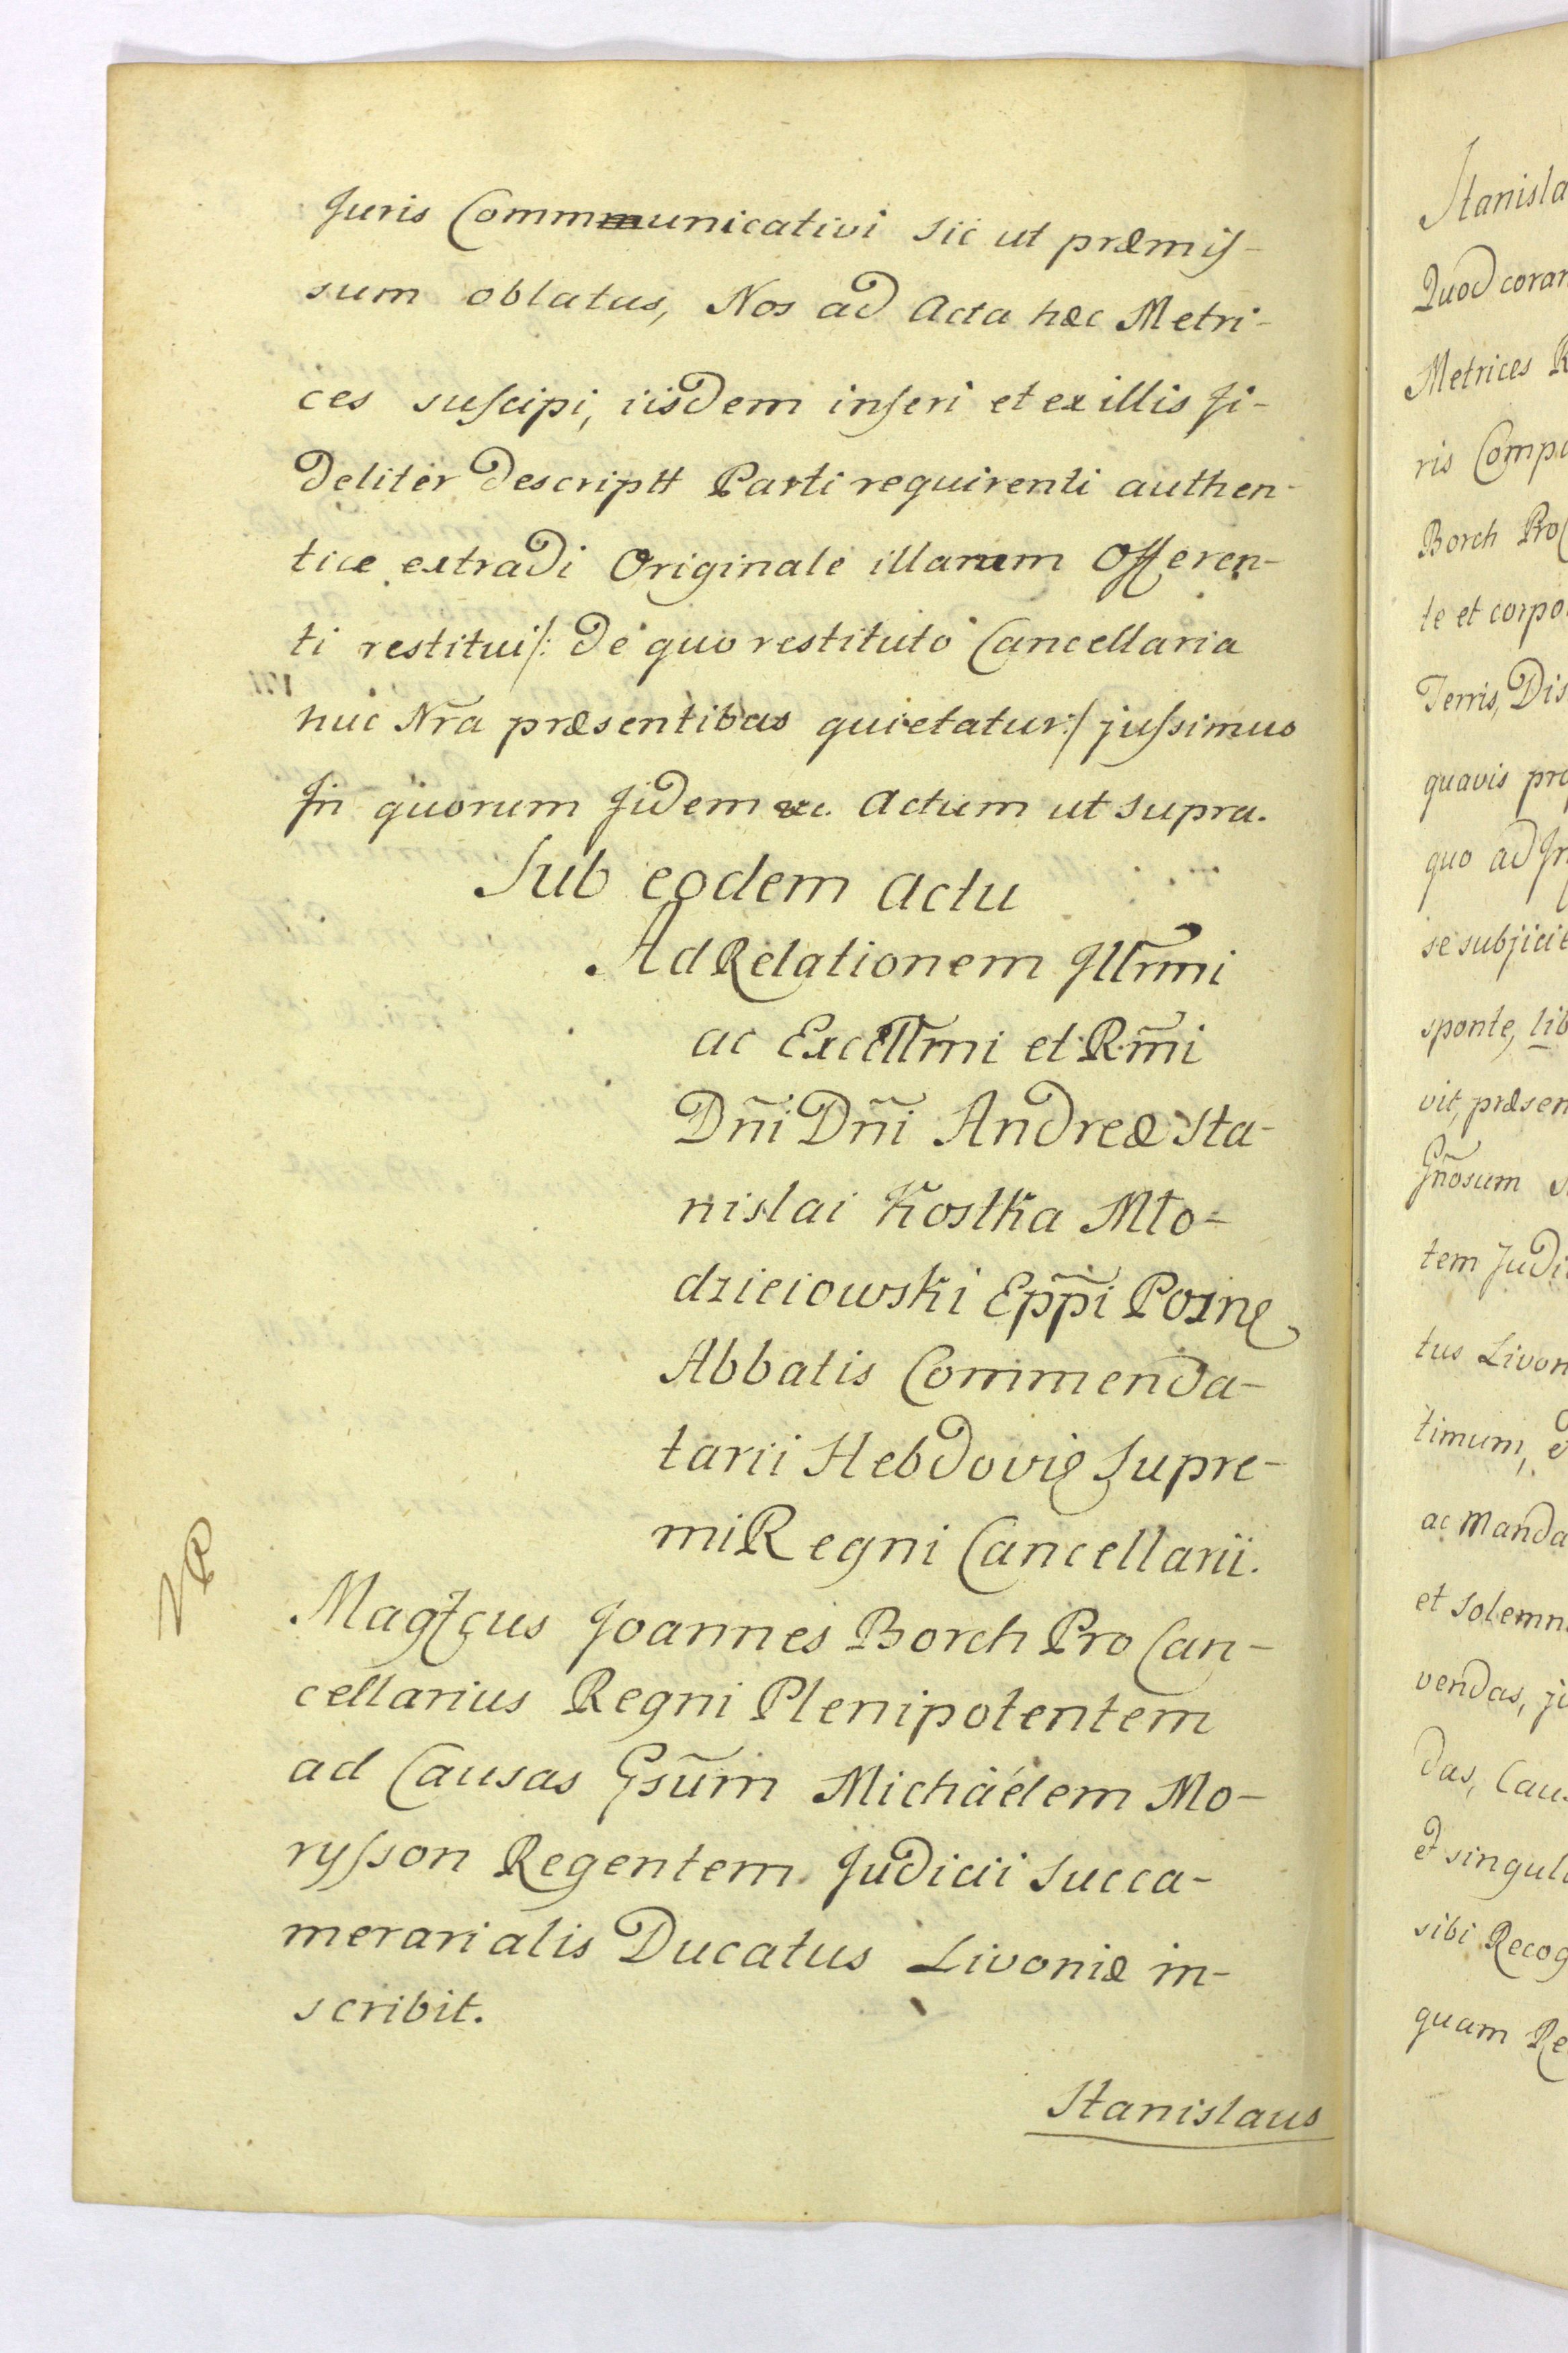 Juris Communicativi sic ut præmis-
sum oblatus, Nos ad Acta hæc Metri-
ces suscipi, iisdem inseri et ex illis fi-
deliter descriptt Parti requirenti authen-
tice extradi Originale illarum Offeren-
ti restitui/: de quo restituto Cancellaria
huic Nr̃a præsentibus quietatur:/ jussimus
In quorum fidem &c. Actum ut supra.
Sub eodem Actu
Ad Relationem Illr̃mi
ac Excell̃mi et R.m̃i
Dñi Dñi Andreæ Sta-
nislai Kostka Mło-
dzieiowski Epp̃i Posnę
Abbatis Commenda-
tarii Hebdovię Supre-
mi Regni Cancellarii.
VP
Magfcus Joannes Borch Pro Can-
cellarius Regni Plenipotentem
ad Causas Gsũm Michäélem Mo-
rysson Regentem Judicii Succa-
merarialis Ducatus Livoniæ in-
scribit.
Stanislaus
Stanisla
Quod coram
Metrices R
ris Compa
Borch Pro C
te et corpo
Terris, Dis
quavis pro
quo ad In
se subjicie
sponte, lib
vit, præsen
Gñosum S
tem Judi
tus Livon
timum, e
ac Manda
et Solemn
vendas, ju
das, Caus
et singul
sibi Recog
quam Re